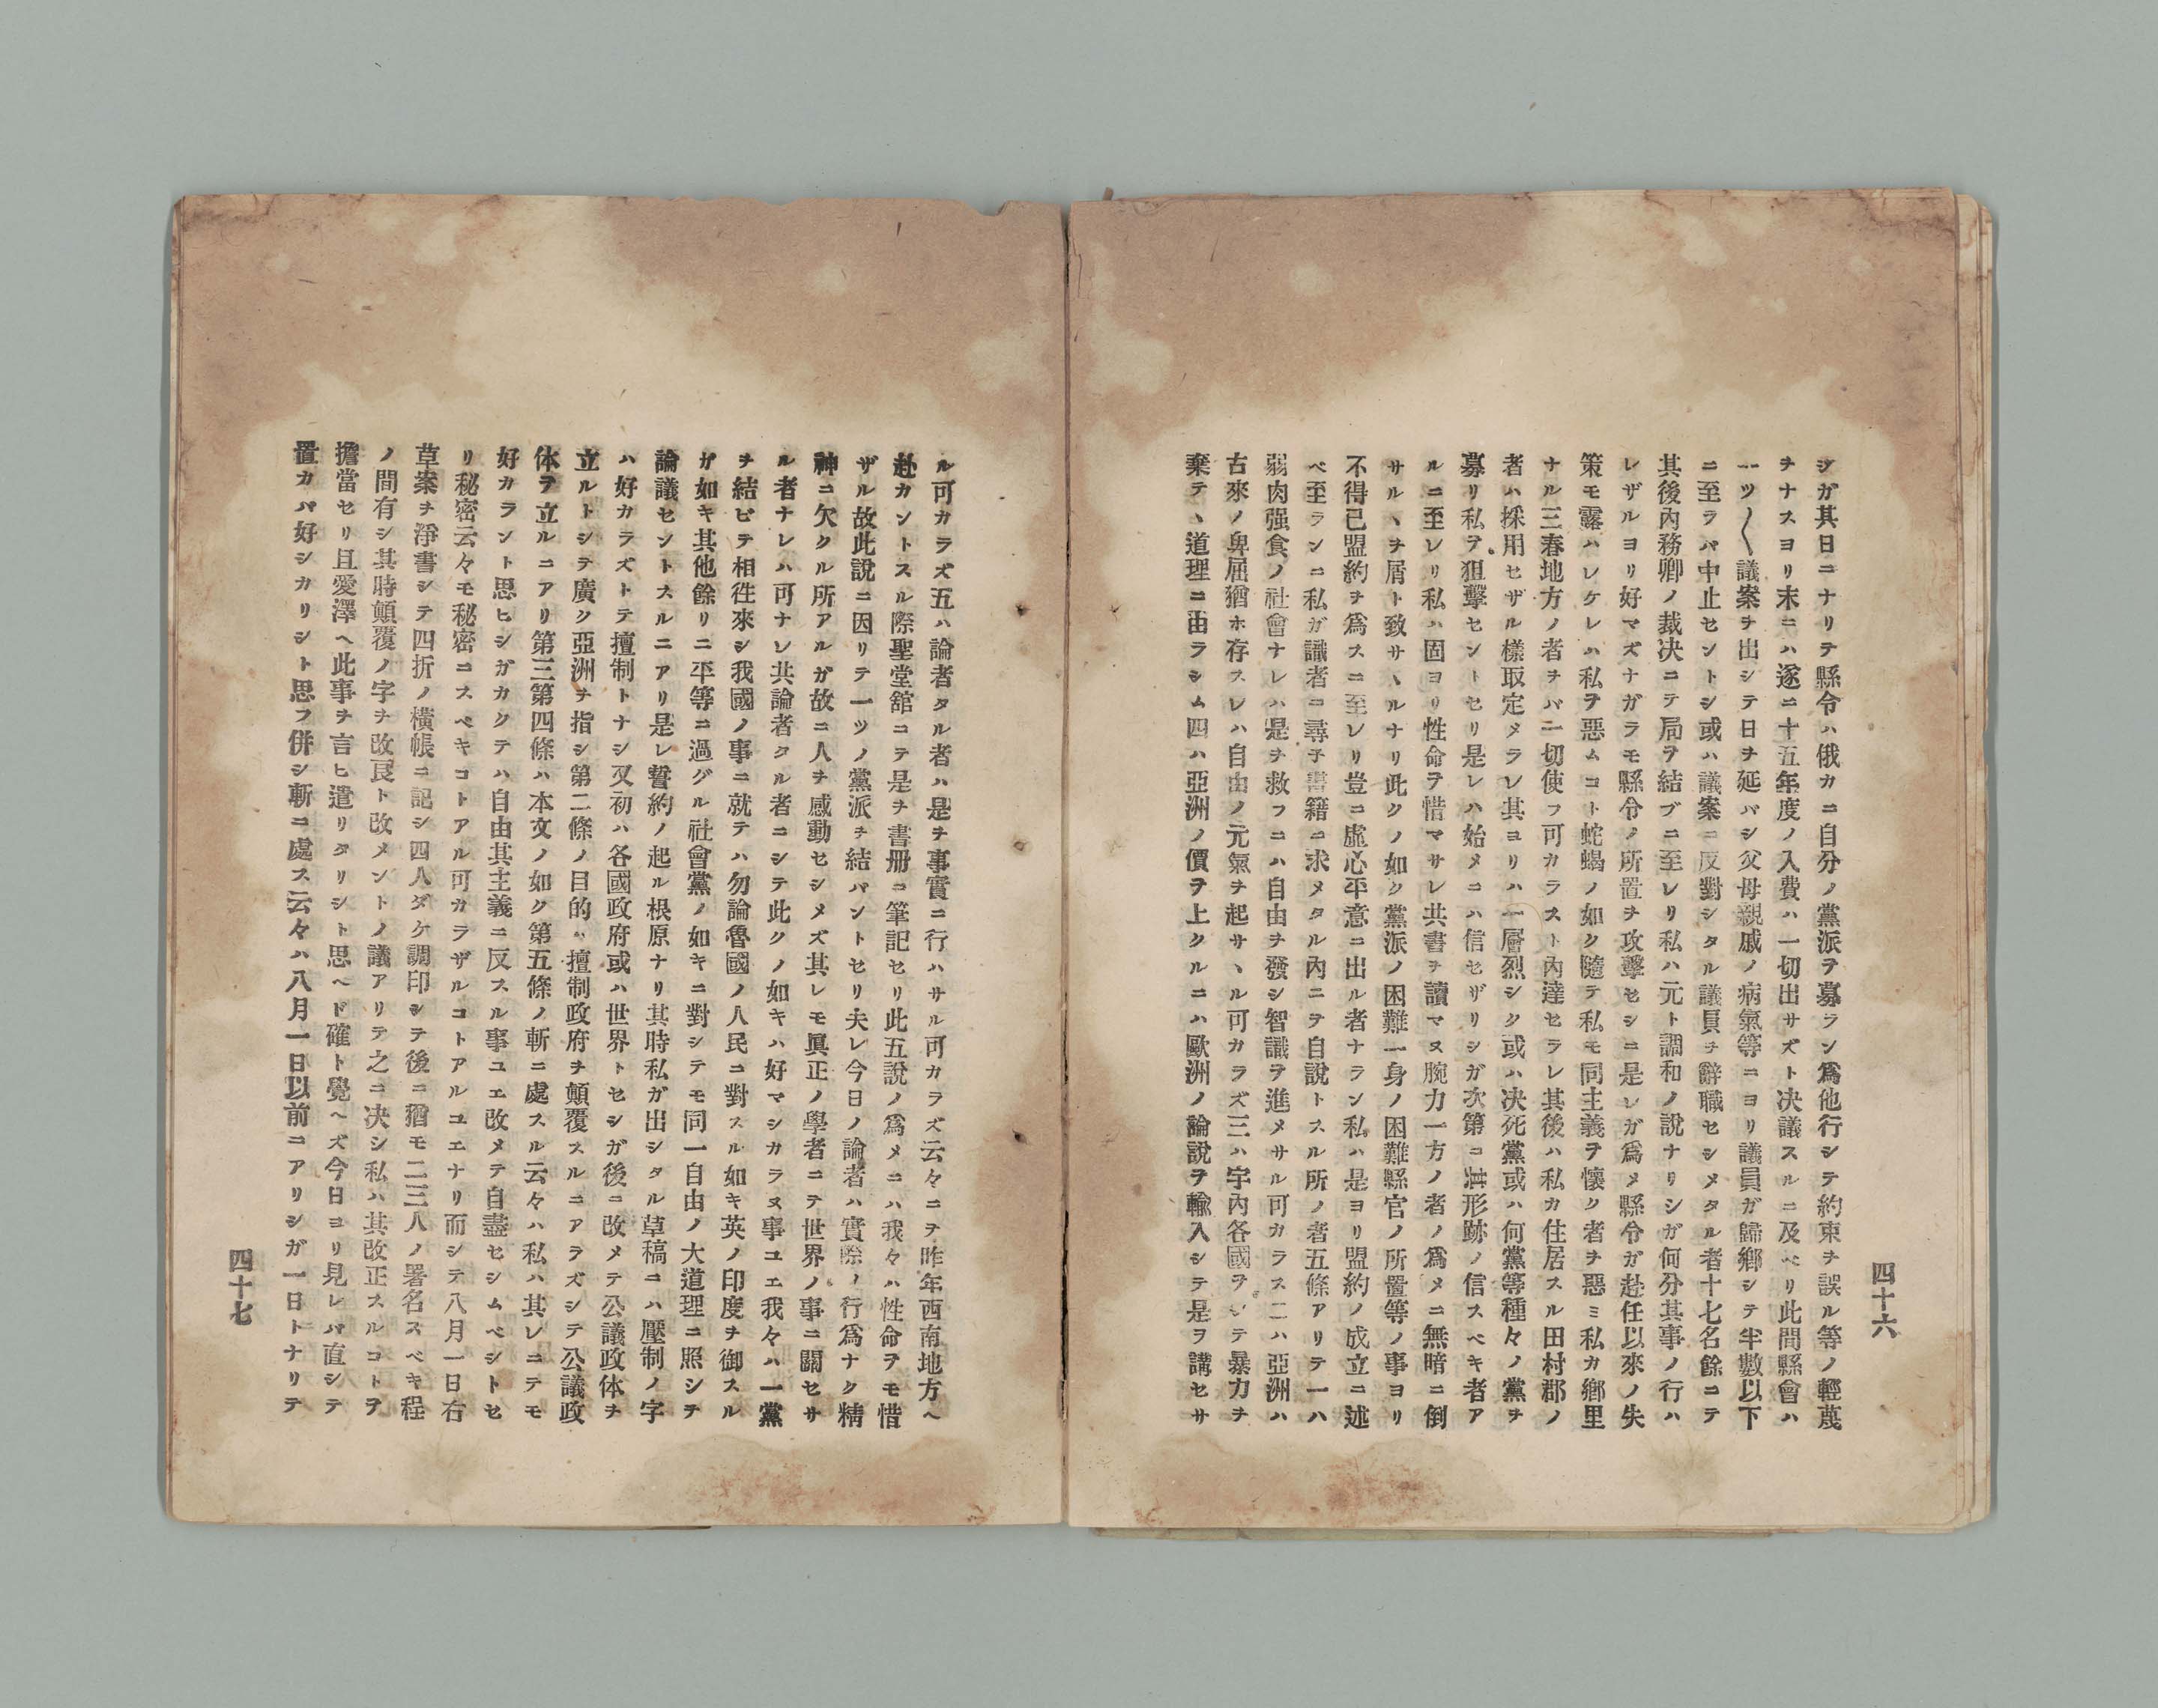 四十六
シガ其日ニナリテ縣令ハ俄カニ自分ノ黨派ヲ募ラン爲他行シテ約束ヲ誤ル等ノ輕蔑
ヲナスヨリ末ニハ遂ニ十五年度ノ入費ハ一切出サズト决議スルニ及ベリ此間縣會ハ
一ツ〱議案ヲ出シテ日ヲ延バシ父母親戚ノ病氣等ニヨリ議員ガ歸鄕シテ半數以下
ニ至ラバ中止セントシ或ハ議案ニ反對シタル議員ヲ辭職セシメタル者十七名餘ニテ
其後内務卿ノ裁决ニテ局ヲ結ブニ至レリ私ハ元ト調和ノ說ナリシガ何分其事ノ行ハ
レザルヨリ好マズナガラモ縣令ノ所置ヲ攻擊セシニ是レガ爲メ縣令ガ赴任以來ノ失
策モ露ハレケレハ私ヲ惡ムコト蛇蝎ノ如ク隨テ私モ同主義ヲ懷ク者ヲ惡ミ私カ鄕里
ナル三春地方ノ者ヲバ一切使フ可カラスト内達セラレ其後ハ私カ住居スル田村郡ノ
者ハ採用セザル樣取定メラレ其ヨリハ一層烈シク或ハ决死黨或ハ何黨等種々ノ黨ヲ
募リ私ヲ狙擊セントセリ是レハ始メニハ信セザリシガ次第ニ其形跡ノ信スベキ者ア
ルニ至レリ私ハ固ヨリ性命ヲ惜マサレ共書ヲ讀マヌ腕力一方ノ者ノ爲メニ無暗ニ倒
サルヽヲ屑ト致サヽルナリ此クノ如ク黨派ノ困難一身ノ困難縣官ノ所置等ノ事ヨリ
不得已盟約ヲ爲スニ至レリ豈ニ虛心平意ニ出ル者ナラン私ハ是ヨリ盟約ノ成立ニ述
ベ至ランニ私ガ識者ニ尋子書籍ニ求メタル内ニテ自說トスル所ノ者五條アリテ一ハ
弱肉强食ノ社會ナレハ是ヲ救フニハ自由ヲ發シ智識ヲ進メサル可カラス二ハ亞洲ハ
古來ノ卑屈猶ホ存スレハ自由ノ元氣ヲ起サヽル可カラズ三ハ宇内各國ヲシテ暴力ヲ
棄テヽ道理ニ由ラシム四ハ亞洲ノ價ヲ上クルニハ歐洲ノ論說ヲ輸入シテ是ヲ講セサ
ル可カラズ五ハ論者タル者ハ是ヲ事實ニ行ハサル可カラズ云々ニヲ昨年西南地方ヘ
赴カントスル際聖堂舘ニテ是ヲ書册ニ筆記セリ此五說ノ爲メニハ我々ハ性命ヲモ惜
ザル故此說ニ因リテ一ツノ黨派ヲ結バントセリ夫レ今日ノ論者ハ實際ノ行爲ナク精
神ニ欠クル所アルガ故ニ人ヲ感動セシメズ其レモ眞正ノ學者ニテ世界ノ事ニ關セサ
ル者ナレハ可ナレ共論者タル者ニシテ此クノ如キハ好マシカラヌ事ユエ我々ハ一黨
ヲ結ビテ相徃來シ我國ノ事ニ就テハ勿論魯國ノ人民ニ對スル如キ英ノ印度ヲ御スル
ガ如キ其他餘リニ不平等ニ過グル社會黨ノ如キニ對シテモ同一自由ノ大道理ニ照シテ
論議セントスルニアリ是レ誓約ノ起ル根原ナリ其時私ガ出シタル草稿ニハ壓制ノ字
ハ好カラズトテ擅制トナシ又初ハ各國政府或ハ世界トセシガ後ニ改メテ公議政体ヲ
立ルトシテ廣ク亞洲ヲ指シ第二條ノ目的ハ擅制政府ヲ顚覆スルニアラズシテ公議政
体ヲ立ルニアリ第三第四條ハ本文ノ如ク第五條ノ斬ニ處スル云々ハ私ハ其レニテモ
好カラント思ヒシガカクテハ自由其主義ニ反スル事ユエ改メテ自盡セシムベシトセ
リ秘密云々モ秘密ニスベキコトアル可カラザルコトアルユエナリ而シテ八月一日右
草案ヲ淨書シテ四折ノ橫帳ニ記シ四人ダケ調印シテ後ニ猶モ二三人ノ署名スベキ程
ノ間有シ其時顚覆ノ字ヲ改良ト改メントノ議アリテ之ニ决シ私ハ其改正スルコトヲ
擔當セリ且愛澤ヘ此事ヲ言ヒ遣リタリシト思ヘド確ト覺ヘズ今日ヨリ見レバ直シテ
置カバ好シカリシト思フ併シ斬ニ處ス云々ハ八月一日以前ニアリシガ一日トナリテ
四十七